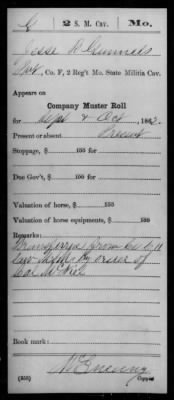 G 2 S. M. Cav. Mo.
Jesse
Pvt., Co. F, 2 Reg't Mo. State Militia Cav.
Appears on
Company Muster Roll
for Sept & Oct, 1862.
Present or absent Present
Stoppage, $ 100 for
Due Gov't, $ 100 for
Valuation of horse, $ 100
Valuation of horse equipments, $ 100
Remarks:
Transferred from Co
by order of
Col. McNeil
Book mark:
(358) Copyist.